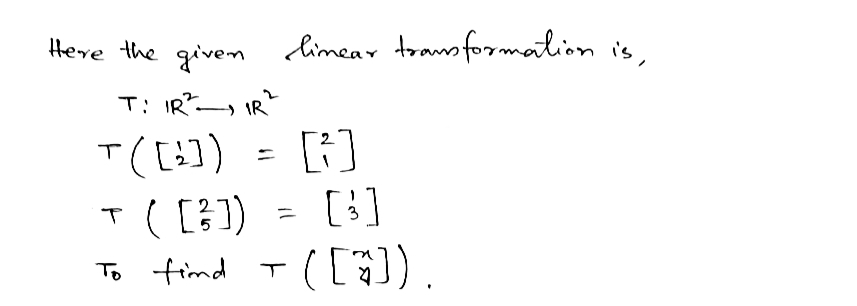 Here the given linear transformation is,
T: ℝ² → ℝ²
T([1 2]) = [2 1]
T([2 5]) = [1 3]
To find T([x y]).